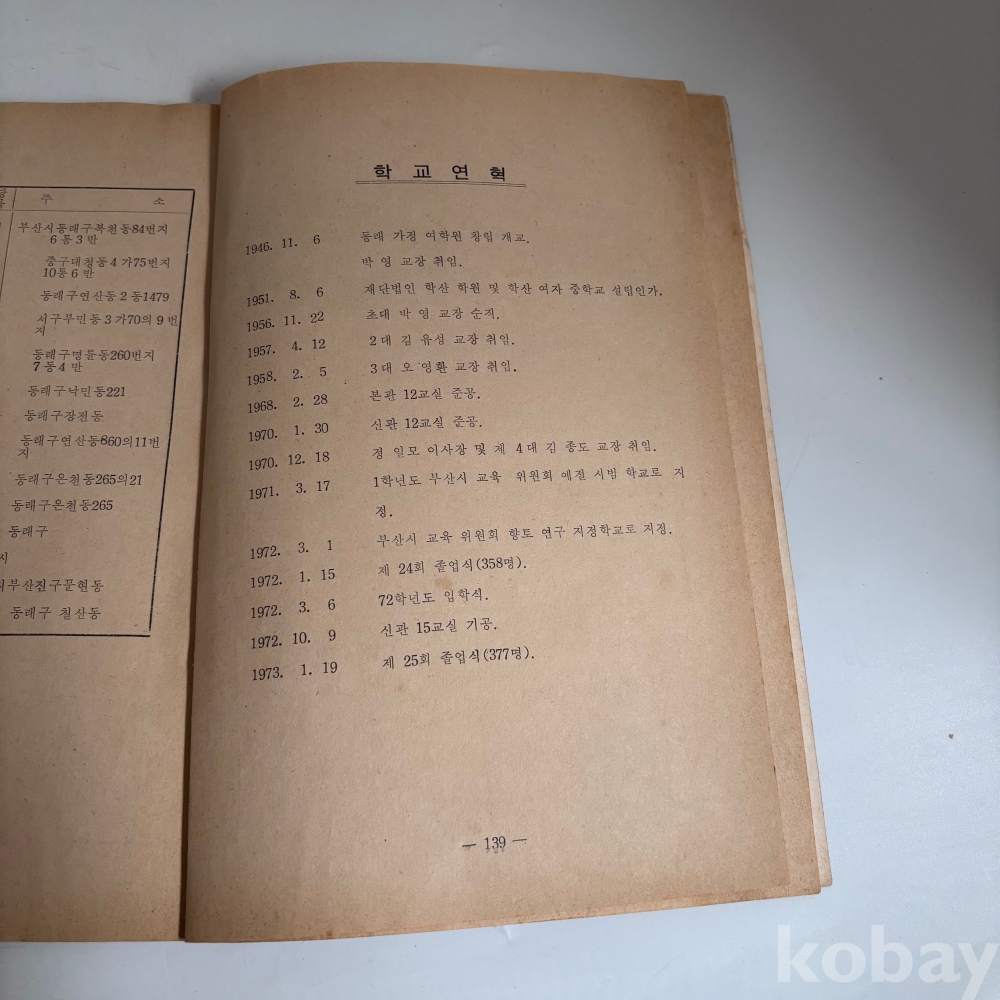 주 소
부산시동래구복천동84번지
6통3반
중구대청동4가75번지
10통6반
동래구연산동2동1479
서구부민동3가70의9번
지
동래구명륜동260번지
7동4반
동래구낙민동221
동래구장전동
동래구연산동860의11번
지
동래구온천동265의21
동래구온천동265
동래구
시
부산진구문현동
동래구 칠산동
학 교 연 혁
1946. 11. 6 동래 가정 여학원 창립 개교.
박 영 교장 취임.
1951. 8. 6 재단법인 학산 학원 및 학산 여자 중학교 설립인가.
1956. 11. 22 초대 박 영 교장 순직.
1957. 4. 12 2대 김 유성 교장 취임.
1958. 2. 5 3대 오 영환 교장 취임.
1968. 2. 28 본관 12교실 준공.
1970. 1. 30 신관 12교실 준공.
1970. 12. 18 정 일모 이사장 및 제 4대 김 종도 교장 취임.
1971. 3. 17 1학년도 부산시 교육 위원회 예절 시범 학교로 지
정.
1972. 3. 1 부산시 교육 위원회 향토 연구 지정학교로 지정.
1972. 1. 15 제 24회 졸업식(358명).
1972. 3. 6 72학년도 입학식.
1972. 10. 9 신관 15교실 기공.
1973. 1. 19 제 25회 졸업식(377명).
— 139 —
kobay